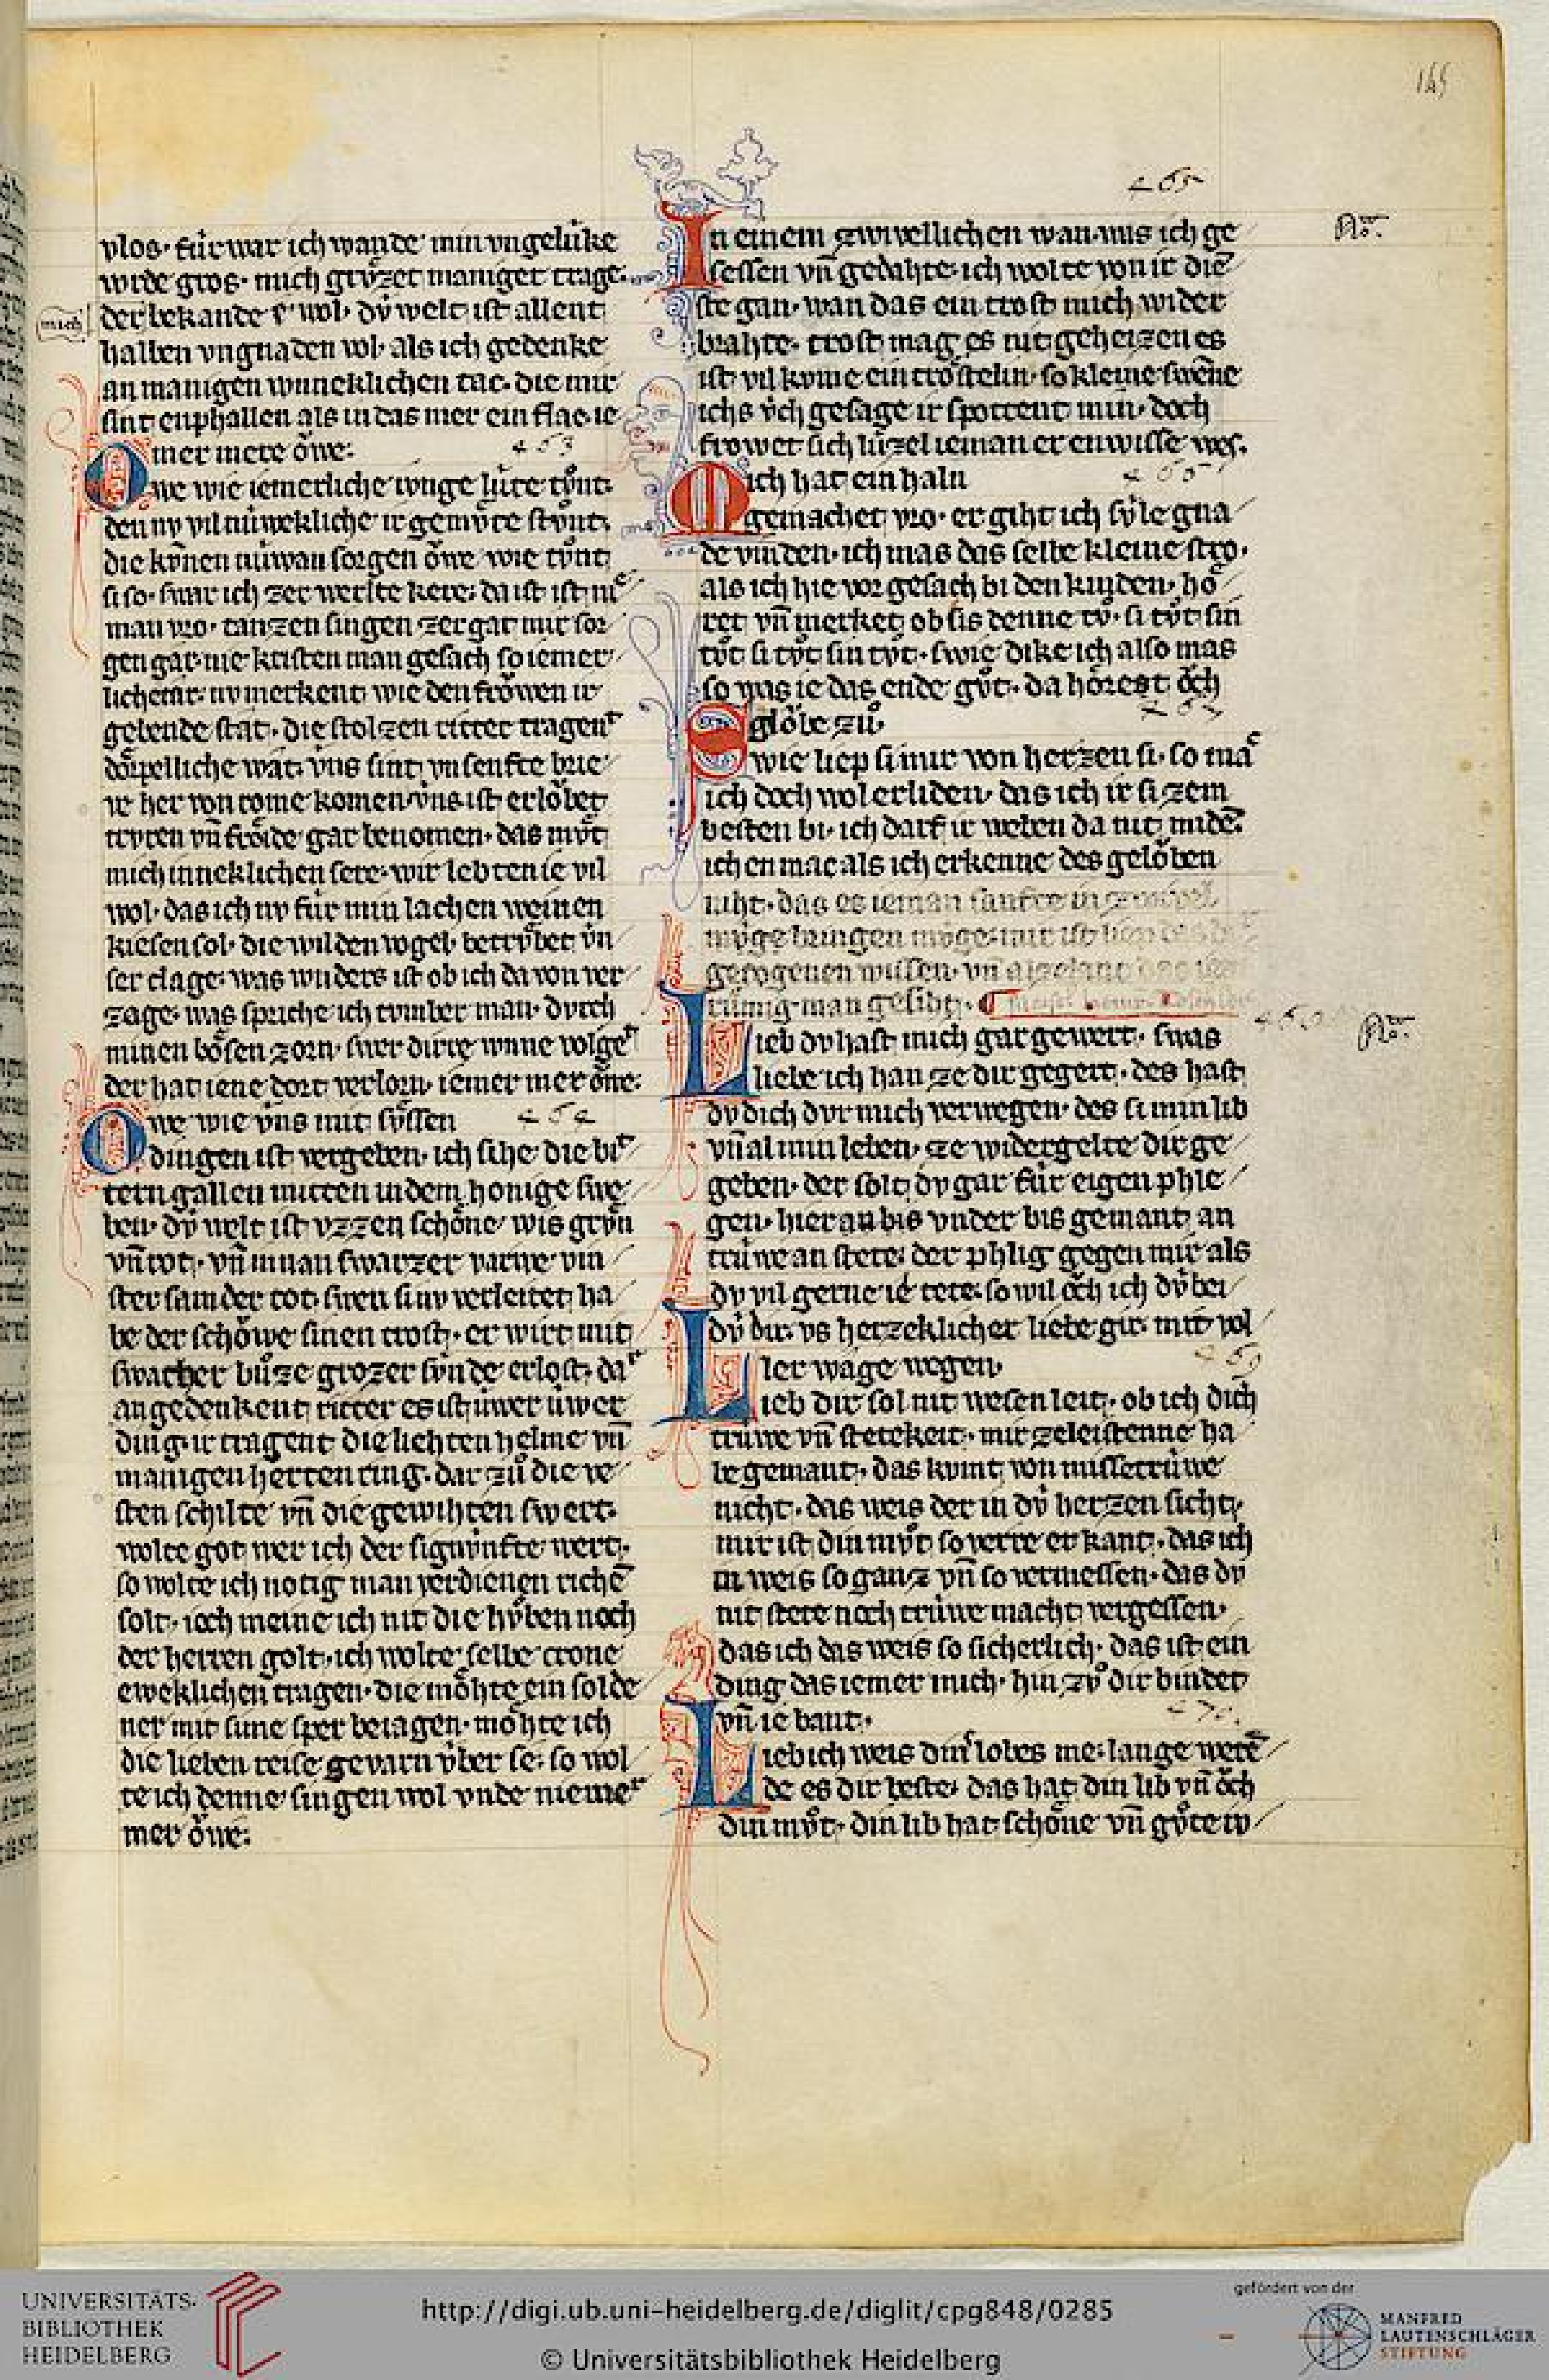 145
vlos· fúr war ich wande min vngelúke
wrde gros· mich grv̊zet maniger trage·
mich
der bekande e wol· dv̍ welt ist allent
halben vngnaden vol· als ich gedenke
an manigen wnneklichen tac· die mir
sint enphallen als in das mer ein slac· ie
mer mere ǒwe: 463
Owe wie iemerliche ivnge lúte tv̊nt·
den nv vil núwekliche ir gemv̊te stv̊nt·
die kvnen núwan sorgen ǒwe wie tv̊nt
si so· swar ich zer werlte kere· da ist ist nie
man vro· tanzen singen zergat mit sor
gen gar· nie kristen man gesach so iemer
liche iar· nv merkent wie den frǒwen ir
gebende stat· die stolzen ritter tragent
dŏrpelliche wat· v̍ns sint vnsenfte brie
ve her von rome komen· v̍ns ist erlǒbet
trvren vn̄ frŏide gar benomen· das mv̊t
mich inneklichen sere· wir lebten ie vil
wol· das ich nv fúr min lachen weinen
kiesen sol· die wilden vogel betrv̊bet v̍n
ser clage· was wnders ist ob ich da von ver
zage· was spriche ich tvmber man· dvrch
minen bŏsen zorn· swer dirre wnne volget
der hat iene dort verlorn· iemer mer ǒwe·
Owe wie v̍ns mit sv̊ssen 464
dingen ist vergeben· ich sihe die bit
tern gallen mitten in dem honige swe
ben· dv̍ welt ist vzzen schŏne wis grv̊n
vn̄ rot· vn̄ innan swarzer varwe vin
ster sam der tot· swen si nv verleitet ha
be der schǒwe sinen trost· er wirt mit
swacher bůze grozer sv̍nde erlost· dar
an gedenkent ritter es ist úwer úwer
ding· ir tragent die liehten helme vn̄
manigen herten ring· dar zů die ve
sten schilte vn̄ die gewihten swert·
wolte got wer ich der signv̍nfte wert·
so wolte ich notig man verdienen richē
solt· ioch meine ich nit die hv̊ben noch
der herren golt· ich wolte selbe crone
eweklichen tragen· die mŏhte ein solde
ner mit sime sper beiagen· mŏhte ich
die lieben reise gevarn v̍ber se· so wol
te ich denne singen wol vnde niemer
mer ǒwe:
465
In einem zwivellichen wan· was ich ge
sessen vn̄ gedahte· ich wolte von ir die
ste gan· wan das ein trost mich wider
brahte· trost mag es nit geheizen es
ist vil kvme ein trŏstelin· so kleine swēne
ichs v́ch gesage ir spottent min· doch
frowet sich lúzel ieman er enwisse wes·
Mich hat ein halm
gemachet vro· er giht ich sv́le gna
de vinden· ich mas das selbe kleine stro·
als ich hie vor gesach bi den kinden· hŏ
ret vn̄ merket ob sis denne tv̊· si tv̊t sin
tv̊t si tv̊t sin tv̊t· swie dike ich also mas
so was ie das ende gv̊t· da hŏret ǒch
glǒbe zů·
Swie liep si mir von herzen si· so mac
ich doch wol erliden· das ich ir si zem
besten bi· ich darf ir weben da nit midē·
ich en mac als ich erkenne des gelǒben
niht· das es ieman sanfte in zwivel
mv̍ge bringen mv̍ge· mir ist liep das die
getrogenen wissen·
rúmig man gesiht·
Lieb dv hast mich gar gewert· swas
liebe ich han ze dir gegert· des hast
dv dich dvr mich verwegen· des si min lib
vn̄ al min leben· ze widergelte dir ge
geben· der solt dv gar fúr eigen phle
gen· hier an bis vnder bis gemant an
trúwe an stete· der phlig gegen mir als
dv vil gerne ie tete· so wil ǒch ich dv̍ bei
dv̍ dir· vs herzeklicher liebe gir· mit vol
ler wage wegen· 469
Lieb dir sol nit wesen leit· ob ich dich
trúwe vn̄ stetekeit· mir zeleistenne ha
be gemant· das kvmt von missetrúwe
nicht· das weis der in dv̍ herzen sicht·
mir ist din mv̊t so verre er kant· das ich
in weis so ganz vn̄ so vermessen· das dv
nit stete noch trúwe macht vergessen·
das ich das weis so sicherlich· das ist ein
ding das iemer mich· hin zů dir bindet
vn̄ ie bant· 470.
Lieb ich weis dins lobes me· lange werē
de es dir beste· das hat din lib vn̄ ǒch
din mv̊t· din lib hat schŏne vn̄ gv̊te w
UNIVERSITÄTS-
BIBLIOTHEK
HEIDELBERG
http://digi.ub.uni-heidelberg.de/diglit/cpg848/0285
© Universitätsbibliothek Heidelberg
gefördert von der
MANFRED
LAUTENSCHLÄGER
STIFTUNG